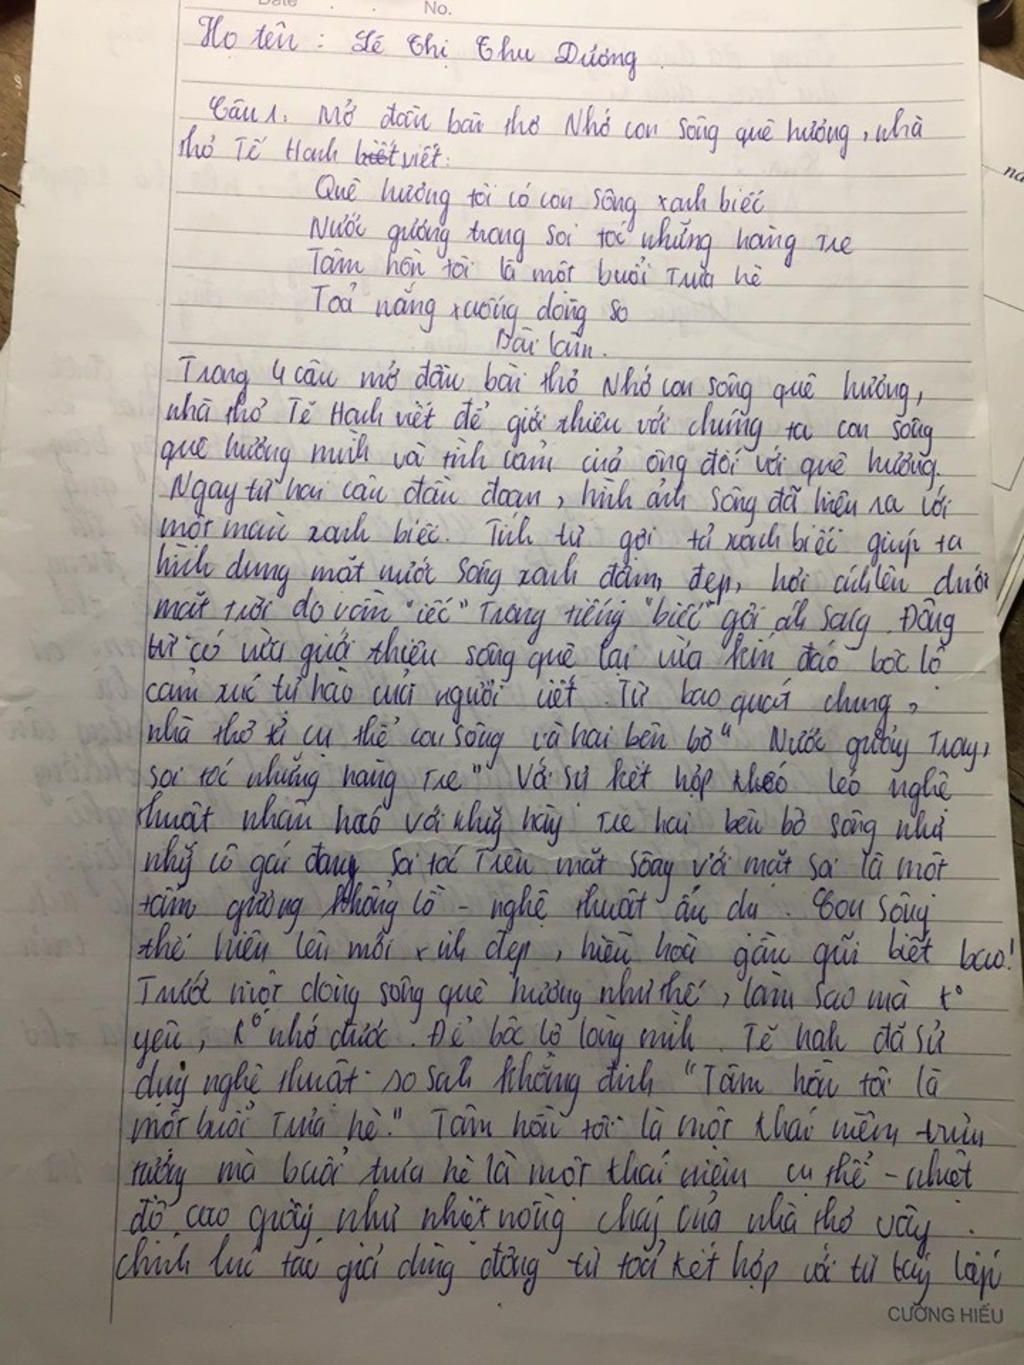 Date . . No.
Họ tên : Lê Thị Thu Dương
Câu 1. Mở đầu bài thơ Nhớ con sông quê hương, nhà
thơ Tế Hanh biết viết:
Quê hương tôi có con sông xanh biếc
Nước gương trong soi tóc những hàng tre
Tâm hồn tôi là một buổi trưa hè
Toả nắng xuống dòng so
Bài làm.
Trong 4 câu mở đầu bài thơ Nhớ con sông quê hương,
nhà thơ Tế Hanh viết để giới thiệu với chúng ta con sông
quê hương mình và tình cảm của ông đối với quê hương.
Ngay từ hai câu đầu đoạn, hình ảnh sông đã hiện ra với
một màu xanh biếc. Tính từ gợi tả xanh biếc giúp ta
hình dung mặt nước sông xanh đậm, đẹp, hơi dưới
mặt trời do vần "iếc" trong tiếng "biếc" gợi ánh sáng. Động
từ có vừa giới thiệu sông quê lại vừa kín đáo bộc lộ
cảm xúc tự hào của người viết. Từ bao quát chung,
nhà thơ tả cụ thể con sông và hai bên bờ "Nước gương trong,
soi tóc những hàng tre" Với sự kết hợp khéo léo nghệ
thuật nhân hoá với những hàng tre hai bên bờ sông như
những cô gái đang soi tóc trên mặt sông với mặt soi là một
tấm gương khổng lồ - nghệ thuật ẩn dụ. Con sông
thế hiện lên mới xinh đẹp, hiền hoà gần gũi biết bao!
Trước một dòng sông quê hương như thế, làm sao mà k°
yêu, k° nhớ được. Để bộc lộ lòng mình. Tế hanh đã sử
dụng nghệ thuật so sánh khẳng định "Tâm hồn tôi là
một buổi trưa hè." Tâm hồn tôi là một khái niệm trừu
tượng mà buổi trưa hè là một khái niệm cụ thể - nhiệt
độ cao giống như nhiệt nồng cháy của nhà thơ vậy.
chính lúc tác giả dùng động từ toả kết hợp với từ láy
CƯỜNG HIẾU